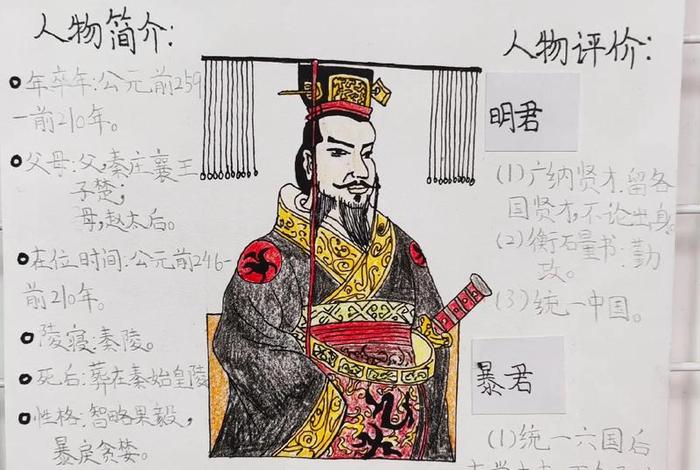 人物简介:
年卒年:公元前259
一前210年。
父母:父,秦庄襄王
子楚;
母,赵太后。
在位时间:公元前246-
前210年。
陵寝:秦陵。
死后:葬在秦始皇陵
性格:智略果毅,
暴戾贪婪。
人物评价:
明君
(1)广纳贤才,留各
国贤才,不论出身。
(2)衡石量书:勤
政。
(3)统一中国。
暴君
(1)统一六国后